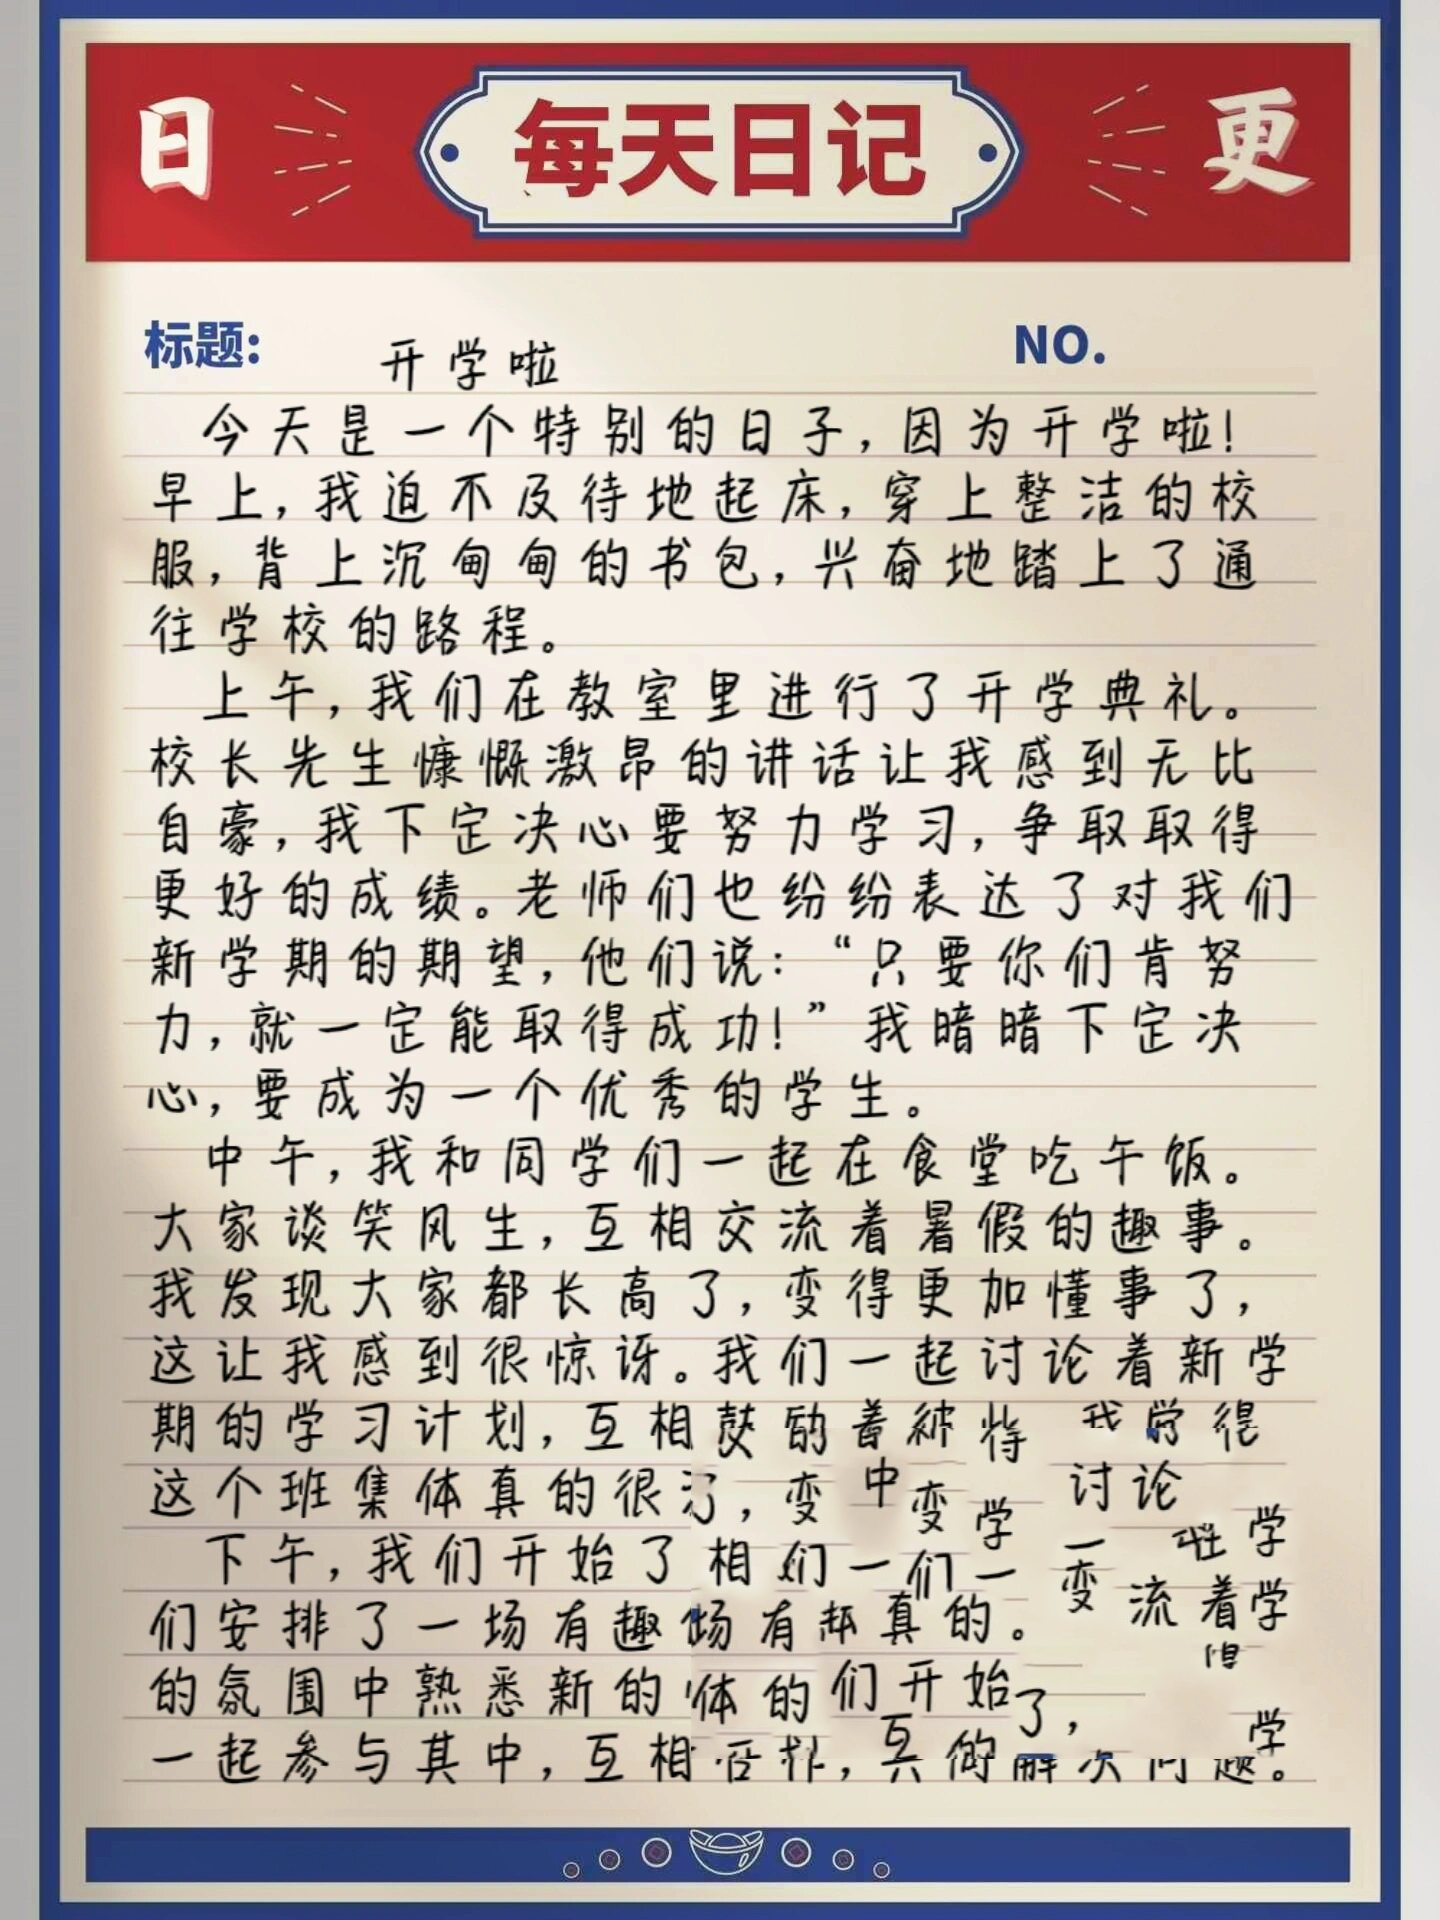 日 每天日记 更
标题: 开学啦 NO.
今天是一个特别的日子，因为开学啦！
早上，我迫不及待地起床，穿上整洁的校
服，背上沉甸甸的书包，兴奋地踏上了通
往学校的路程。
上午，我们在教室里进行了开学典礼。
校长先生慷慨激昂的讲话让我感到无比
自豪，我下定决心要努力学习，争取取得
更好的成绩。老师们也纷纷表达了对我们
新学期的期望，他们说：“只要你们肯努
力，就一定能取得成功！”我暗暗下定决
心，要成为一个优秀的学生。
中午，我和同学们一起在食堂吃午饭。
大家谈笑风生，互相交流着暑假的趣事。
我发现大家都长高了，变得更加懂事了，
这让我感到很惊讶。我们一起讨论着新学
期的学习计划，互相
这个班集体真的很 ，变 中 变 学 讨论
下午，我们开始了 相 们一们一 一 变 学
们安排了一场有趣 场有 真的。 流着学
的氛围中熟悉新的 体的们开始了，
一起参与其中，互相 ，互 学